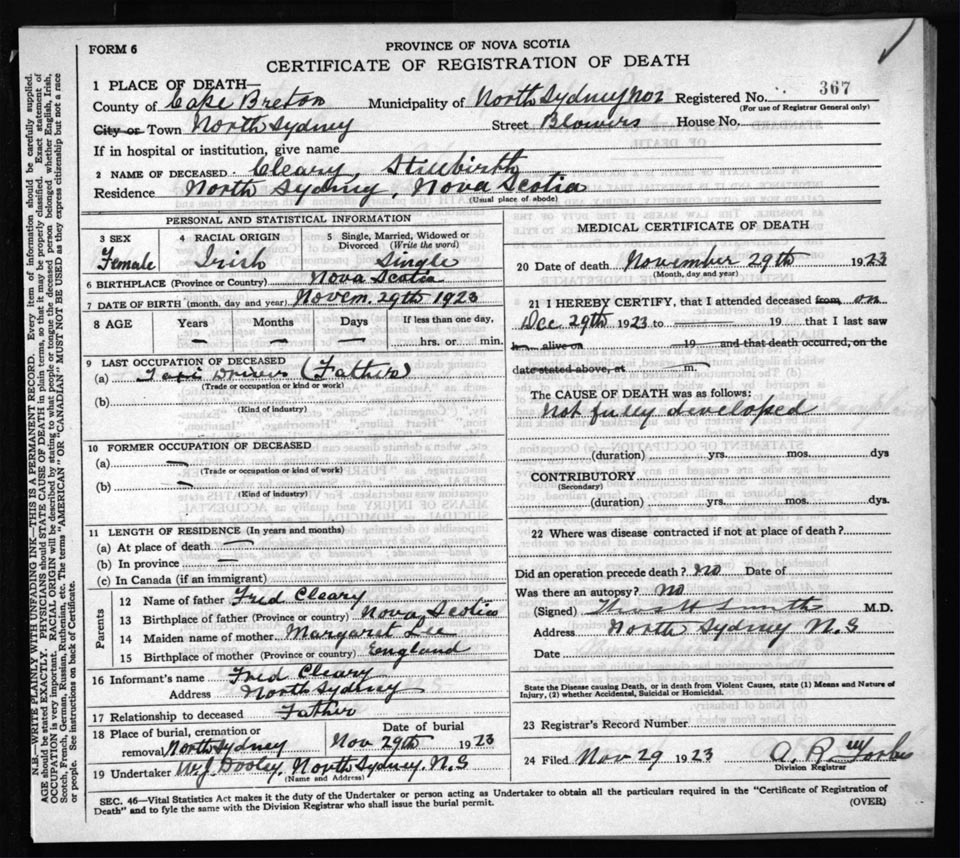 FORM 6
PROVINCE OF NOVA SCOTIA
CERTIFICATE OF REGISTRATION OF DEATH
1 PLACE OF DEATH—
367
County of Cape Breton Municipality of North Sydney No 2 Registered No.
(For use of Registrar General only)
City or Town North Sydney Street Blowers House No.
If in hospital or institution, give name
2 NAME OF DECEASED. Cleary, Stillbirth
Residence North Sydney, Nova Scotia
(Usual place of abode)
PERSONAL AND STATISTICAL INFORMATION
3 SEX 4 RACIAL ORIGIN 5 Single, Married, Widowed or Divorced (Write the word)
Female Irish Single
6 BIRTHPLACE (Province or Country) Nova Scotia
7 DATE OF BIRTH (month, day and year) Novem. 29th 1923
8 AGE Years Months Days If less than one day,
— — — hrs. or min.
9 LAST OCCUPATION OF DECEASED
(a) Taxi Driver (Father)
(Trade or occupation or kind or work)
(b)
(Kind of industry)
10 FORMER OCCUPATION OF DECEASED
(a) —
(Trade or occupation or kind of work)
(b) —
(Kind of industry)
11 LENGTH OF RESIDENCE (In years and months)
(a) At place of death —
(b) In province —
(c) In Canada (if an immigrant)
Parents
12 Name of father Fred Cleary
13 Birthplace of father (Province or country) Nova Scotia
14 Maiden name of mother Margaret Lee
15 Birthplace of mother (Province or country) England
16 Informant's name Fred Cleary
Address North Sydney
17 Relationship to deceased Father
18 Place of burial, cremation or removal North Sydney
Date of burial
Nov 29th 1923
19 Undertaker W J. Dooley, North Sydney. N.S
(Name and Address)
MEDICAL CERTIFICATE OF DEATH
20 Date of death November 29th 1923
(Month, day and year)
21 I HEREBY CERTIFY, that I attended deceased from on
Dec 29th 1923 to — 19 that I last saw
h alive on 19 and that death occurred, on the
date stated above, at m.
The CAUSE OF DEATH was as follows:
Not fully developed
(duration) yrs. mos. dys
CONTRIBUTORY
(Secondary)
(duration) yrs. mos. dys.
22 Where was disease contracted if not at place of death?
Did an operation precede death? No Date of
Was there an autopsy? No
(Signed) Thos H Smith M.D.
Address North Sydney N.S
Date
State the Disease causing Death, or in death from Violent Causes, state (1) Means and Nature of
Injury, (2) whether Accidental, Suicidal or Homicidal.
23 Registrar's Record Number
24 Filed Nov 29 1923 A. R. Forbes
Division Registrar
SEC. 46—Vital Statistics Act makes it the duty of the Undertaker or person acting as Undertaker to obtain all the particulars required in the "Certificate of Registration of
Death" and to fyle the same with the Division Registrar who shall issue the burial permit.
(OVER)
N.B.—WRITE PLAINLY WITH UNFADING INK—THIS IS A PERMANENT RECORD. Every item of information should be carefully supplied.
AGE should be stated EXACTLY. PHYSICIANS should STATE CAUSE OF DEATH in plain terms, so that it may be properly classified. Exact statement of
OCCUPATION is very important. RACIAL ORIGIN will be described by stating to what people or tongue the deceased person belonged whether English, Irish,
Scotch, French, German, Russian, Ruthenian, etc. The terms "AMERICAN" OR "CANADIAN" MUST NOT BE USED as they express citizenship but not a race
or people. See instructions on back of Certificate.